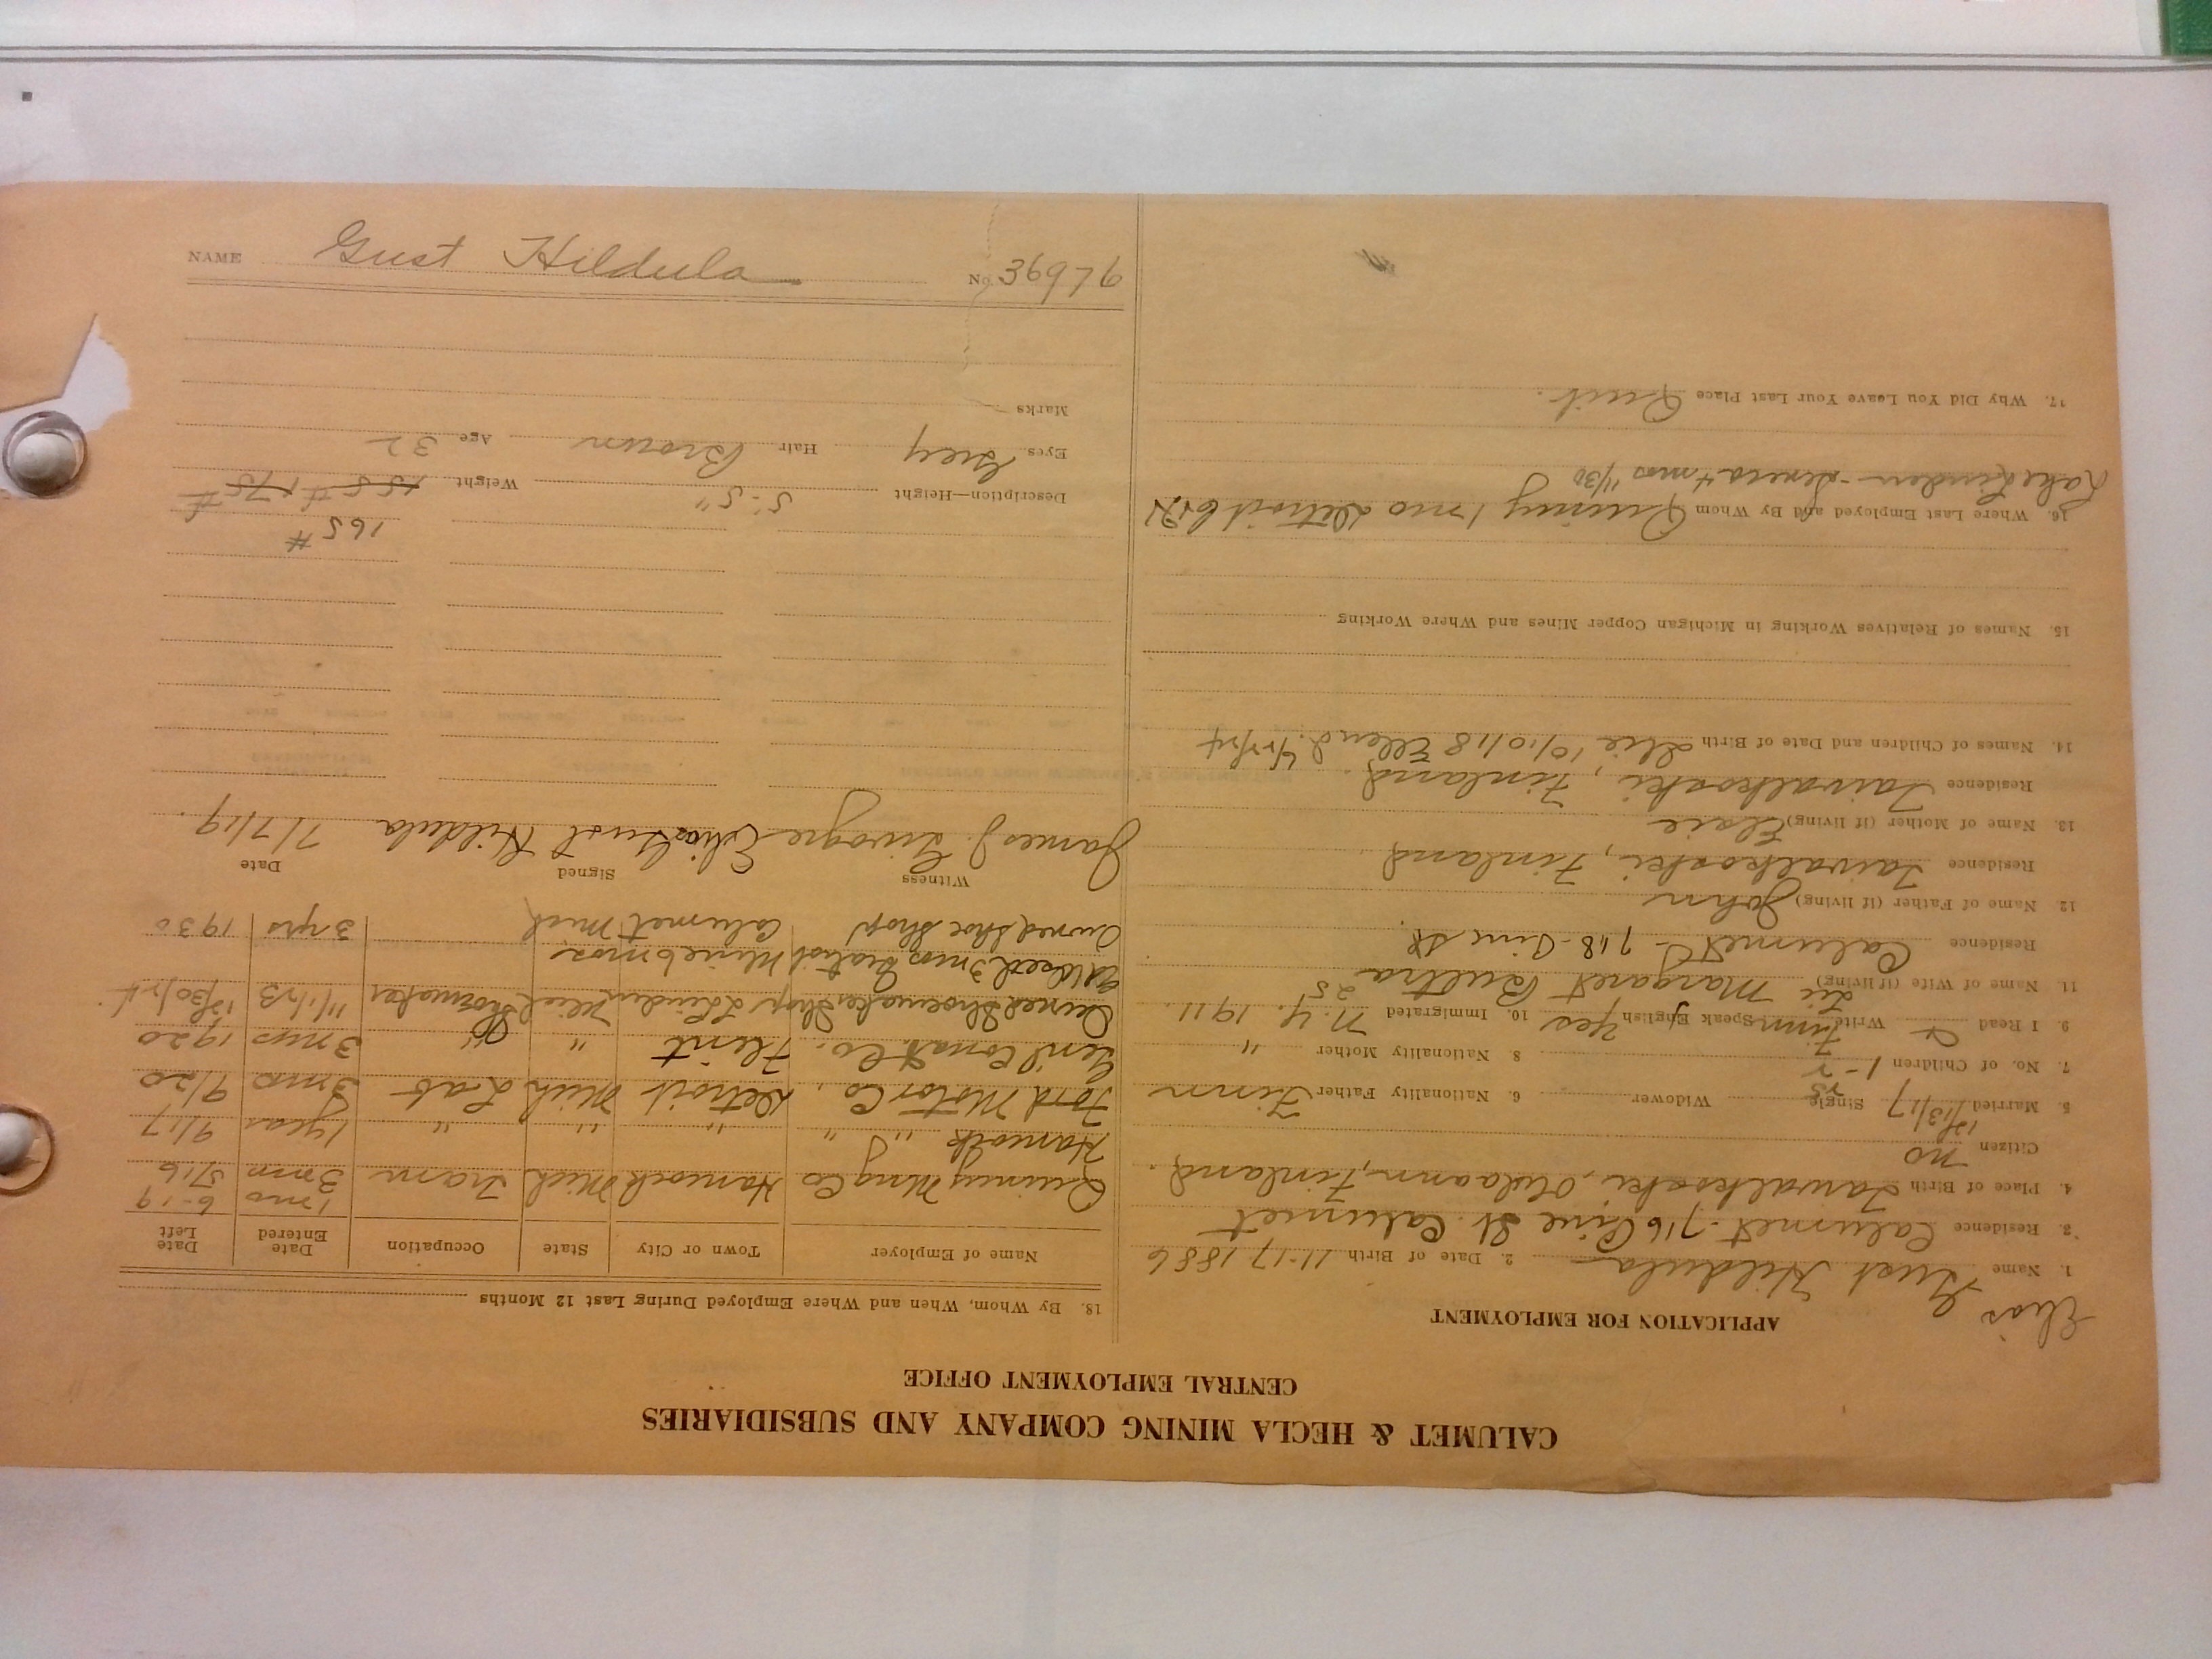 CALUMET & HECLA MINING COMPANY AND SUBSIDIARIES
CENTRAL EMPLOYMENT OFFICE
APPLICATION FOR EMPLOYMENT
Elias
1. Name Gust Hildula 2. Date of Birth 11-17 1886
3. Residence Calumet - 716 Pine St. Calumet
4. Place of Birth Taivalkoski, Finland.
Citizen no
5. Married 12/13/17 Single Widower 6. Nationality Father Finn
7. No. of Children 1-2 8. Nationality Mother "
9. I Read & Write Finn Speak English Yes 10. Immigrated N.Y. 1911.
11. Name of Wife (if living) Margaret 25
Residence Calumet - 718 - Pine St.
12. Name of Father (if living) John
Residence Taivalkoski, Finland
13. Name of Mother (if living) Elsie
Residence Taivalkoski, Finland.
14. Names of Children and Date of Birth 10/10/18 Ellen
15. Names of Relatives Working in Michigan Copper Mines and Where Working
16. Where Last Employed and By Whom Quincy 1 mo Detroit
Lake Linden - Seneca 4 mos 11/30
17. Why Did You Leave Your Last Place Quit.
18. By Whom, When and Where Employed During Last 12 Months
Name of Employer Town or City State Occupation Date Entered Date Left
1 mo 6-19
Quincy Mng Co Hancock Mich Tram 3 mo 5/16
Hancock " " " " 1 year 9/17
Ford Motor Co. Detroit Mich Lab 3 mo 9/20
Gen'l Const. Co. Flint " " 3 mos 1920
Owned Shoemaker Shop L Linden Mich Shoemaker 11/1/23 12/30/24
3 mos 6 mos.
Owned Shoe Shop Calumet Mich 3 yrs 1930
Witness Signed Date
James J. Elias Gust Hildula 7/7/19.
165 #
Description—Height 5'-5" Weight 155 # 175 #
Eyes Grey Hair Brown Age 32
Marks
NAME Gust Hildula No. 36976